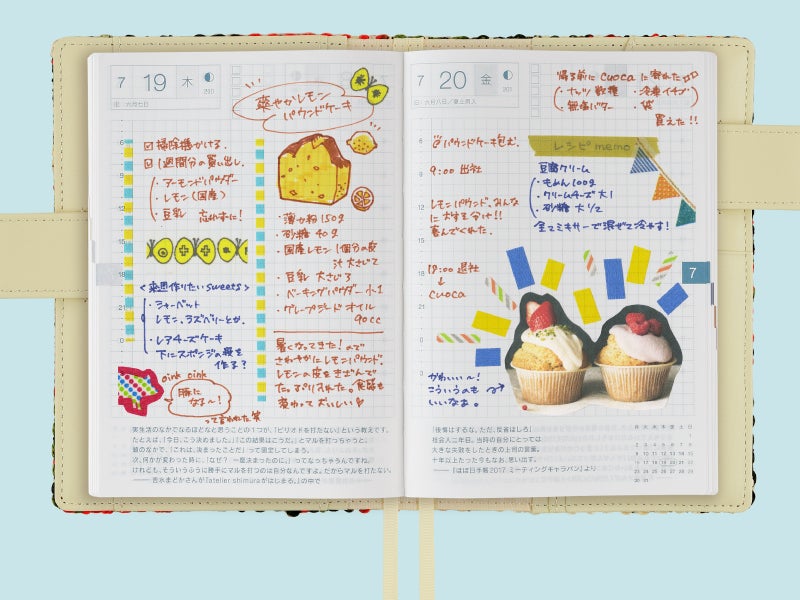 7 19 木
旧:六月七日
爽やかレモン
パウンドケーキ
☑掃除機かける.
☑1週間分の買い出し.
・アーモンドパウダー
・レモン(国産)
・豆乳 忘れずに!
<来週作りたいsweets>
・シャーベット
レモン、ラズベリーとか.
・レアチーズケーキ
下にスポンジの段を
作る?
oink oink
豚に
なる〜!
って言われた笑
・薄力粉 150g
・砂糖 40g
・国産レモン1個分の皮
汁 大さじ2
・豆乳 大さじ3
・ベーキングパウダー 小1
・グレープシードオイル
90cc
暑くなってきた!ので
さわやかにレモンパウンド.
レモンの皮をきざんで
たっぷり入れた。食感も
変わっておいしい
実生活のなかでなるほどなと思うことの1つが、「ピリオドを打たない」という教えです。
たとえば、「今日、こう決めました。」「この結果はこうだ。」とマルを打っちゃうと、
頭のなかで、「これは、決まったことだ」って固定してしまう。
次、何かが変わった時に、「なぜ? 一度決まったのに。」ってなっちゃうんですね。
けれども、そういうふうに勝手にマルを打つのは自分なんですよ。だからマルを打たない。
——吉水まどかさんが『atelier shimuraがはじまる。』の中で
7 20 金
201
旧:六月八日/夏土用入
帰る前にcuocaに寄れた
・ナッツ数種 ・冷凍イチゴ
・無塩バター ・袋
買えた!!
パウンドケーキ包む.
9:00 出社
レモンパウンド、みんな
に大好き分け!!
喜んでくれた.
18:00 退社
↓
cuoca
レシピmemo
豆腐クリーム
・もめん 100g
・クリームチーズ 大1
・砂糖 大1/2
全てミキサーで混ぜて冷やす!
7
かわいい〜!
こういうのも
いいなぁ。
「後悔はするな、ただ、反省はしろ」
社会人二年目。当時の自分にとっては
大きな失敗をしたときの上司の言葉。
十年以上たった今もなお、思い出す。
——『ほぼ日手帳2017 ミーティングキャラバン』より